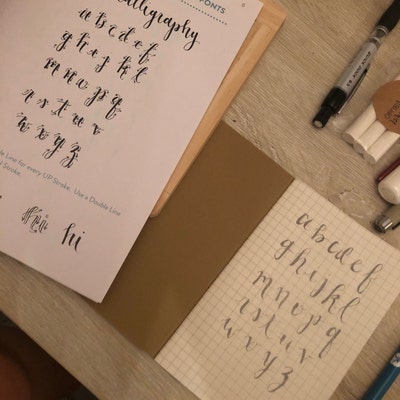 FONTS
Calligraphy
a b c d e f
g h i j k l
m n o p q
r s t u v
w x y z
Line for every UP Stroke. Use a Double Line
Stroke.
hi
a b c d e f
g h i j k l
m n o p q
r s t u v
w x y z